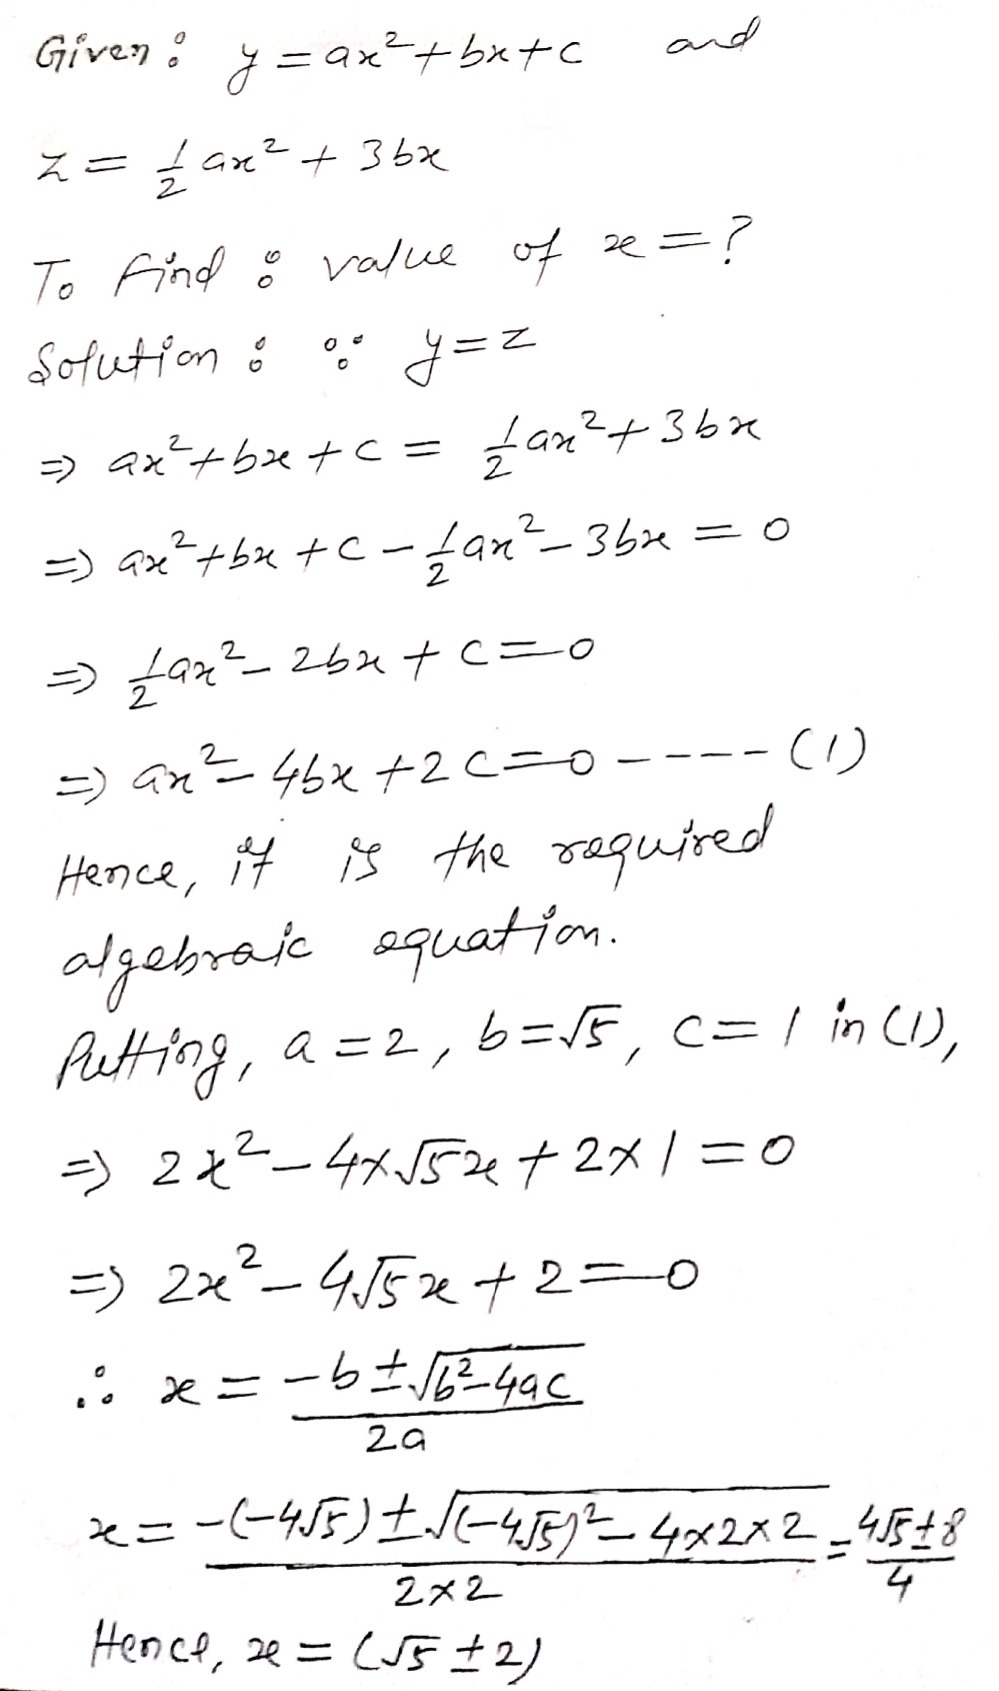 Given : y = ax² + bx + c and
z = 1/2 ax² + 3bx
To Find : value of x = ?
Solution : ∵ y = z
⇒ ax² + bx + c = 1/2 ax² + 3bx
⇒ ax² + bx + c - 1/2 ax² - 3bx = 0
⇒ 1/2 ax² - 2bx + c = 0
⇒ ax² - 4bx + 2c = 0 ---- (1)
Hence, it is the required
algebraic equation.
Putting, a = 2, b = √5, c = 1 in (1),
⇒ 2x² - 4×√5x + 2×1 = 0
⇒ 2x² - 4√5x + 2 = 0
∴ x = -b ± √b²-4ac / 2a
x = -(-4√5) ± √(-4√5)² - 4×2×2 / 2×2 = 4√5 ± 8 / 4
Hence, x = (√5 ± 2)